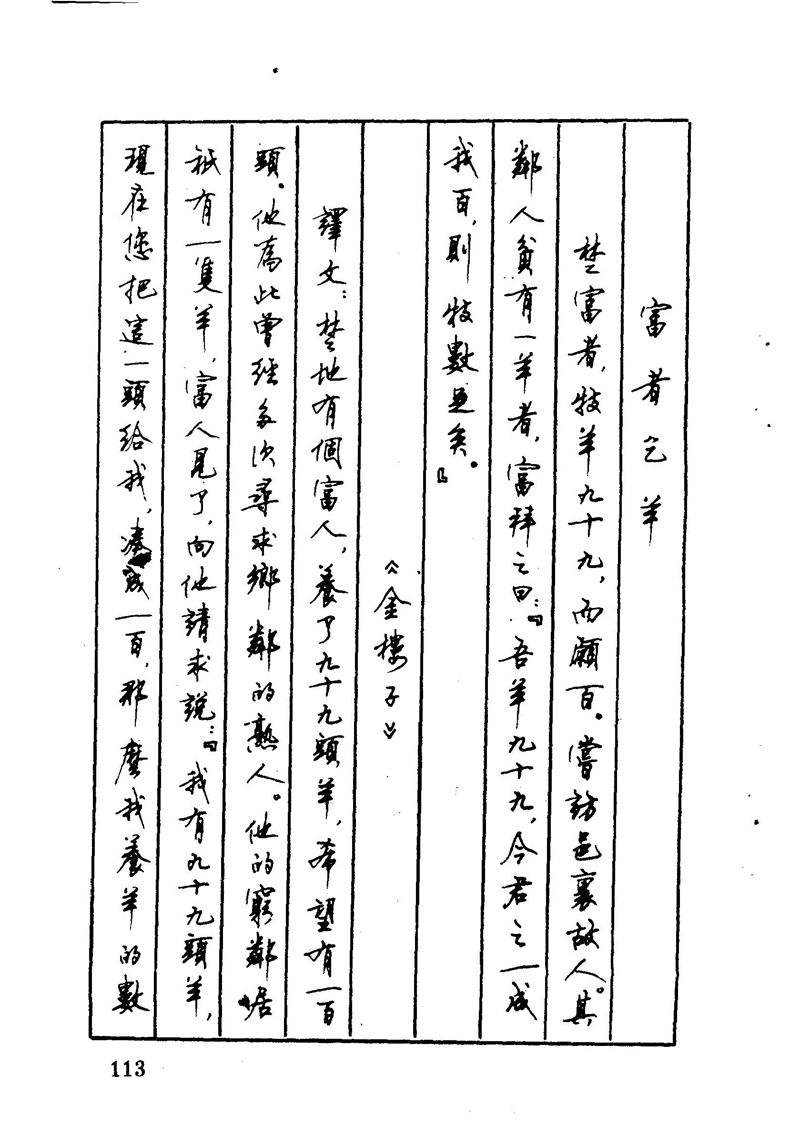 富者乞羊
楚富者，牧羊九十九，而願百。嘗訪邑裏故人。其
鄰人貧有一羊者，富拜之曰：『吾羊九十九，今君之一成
我百，則牧數足矣。』
《金樓子》
譯文：楚地有個富人，養了九十九頭羊，希望有一百
頭。他為此曾經多次尋求鄉鄰的熟人。他的窮鄰居
祇有一隻羊，富人見了，向他請求說：『我有九十九頭羊，
現在您把這一頭給我，湊成一百，那麼我養羊的數
113